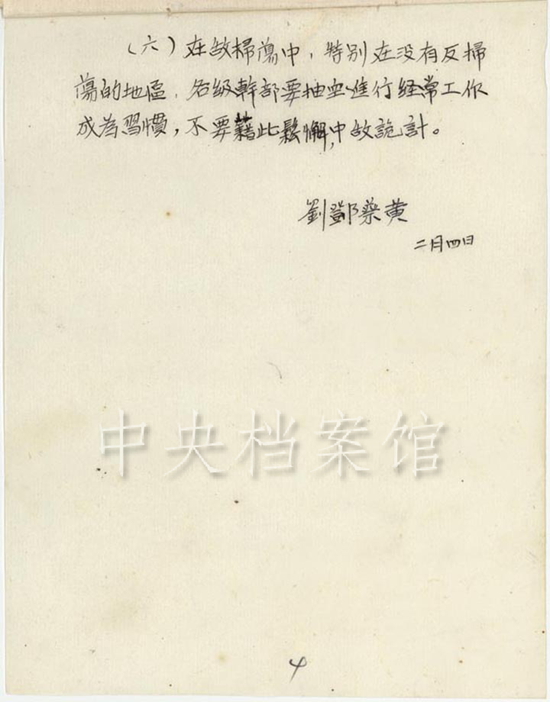 （六）在敌掃蕩中，特别在没有反掃
蕩的地區，各級幹部要抽空進行经常工作
成為習慣，不要藉此鬆懈，中敌詭計。
劉鄧蔡黄
二月四日
中央档案馆
4